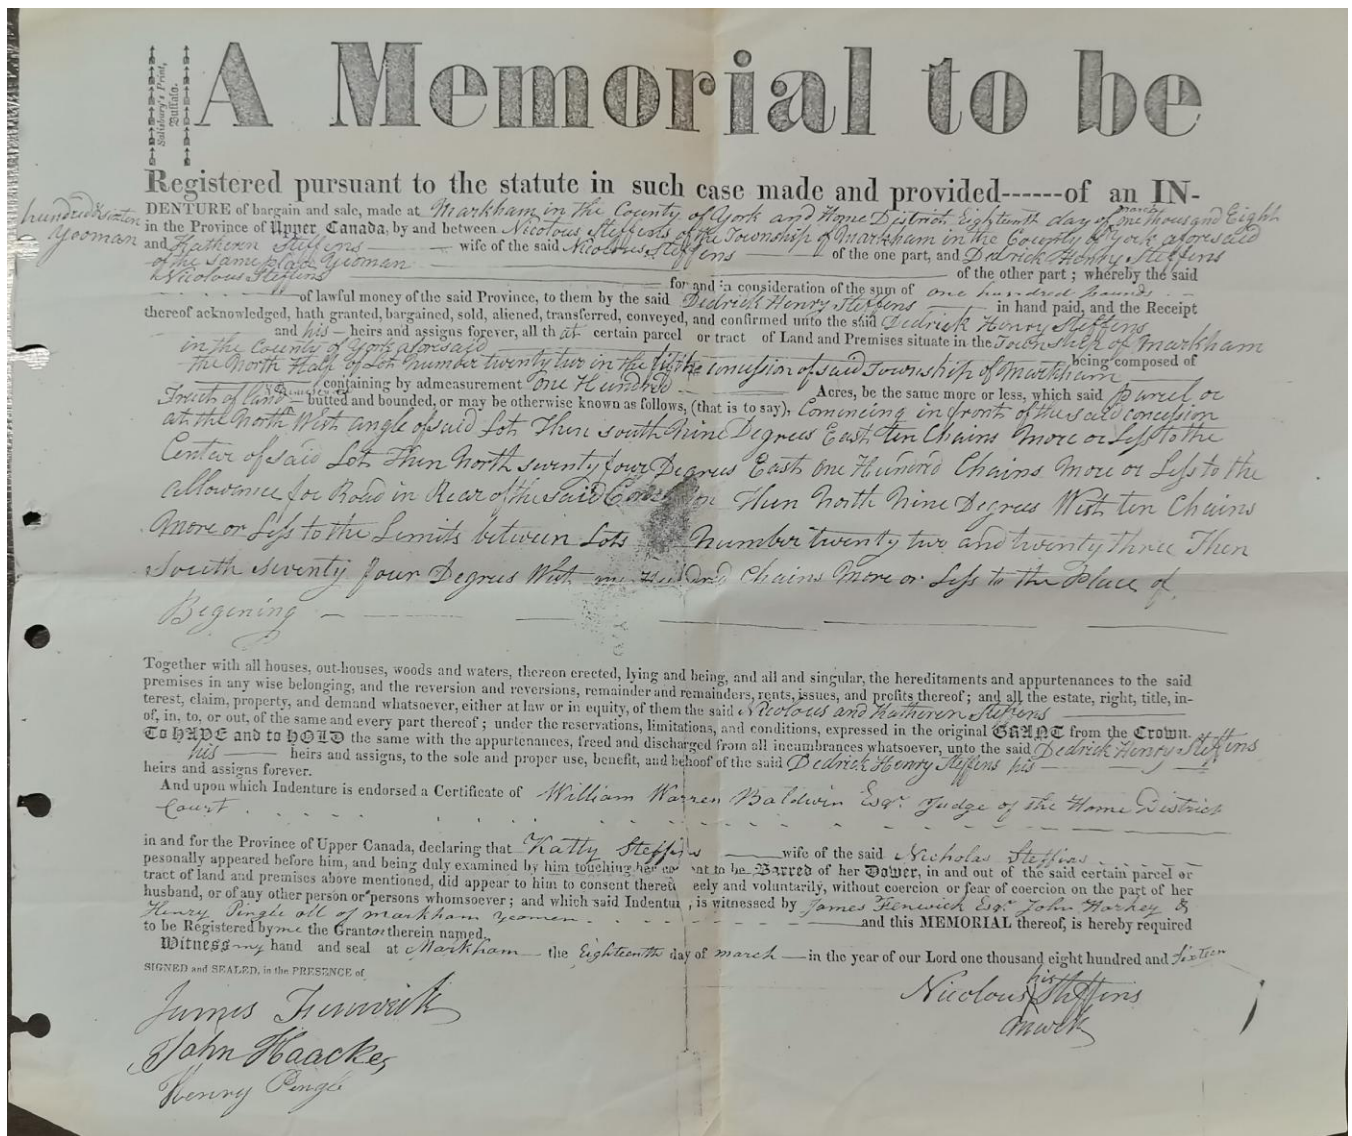 Salisbury's Print,
Buffalo.
A Memorial to be
Registered pursuant to the statute in such case made and provided------of an IN-
DENTURE of bargain and sale, made at Markham in the County of York and Home District Eighteenth day of march one thousand Eight
hundred & sixteen
in the Province of Upper Canada, by and between Nicolous Steffens of the Township of Markham in the County of York aforesaid
yeoman
and Katheren Steffens wife of the said Nicolous Steffens of the one part, and Dedrick Henry Steffens
of the Same place yeoman of the other part ; whereby the said
Nicolous Steffens for and in consideration of the sum of one hundred pounds
of lawful money of the said Province, to them by the said Dedrick Henry Steffens in hand paid, and the Receipt
thereof acknowledged, hath granted, bargained, sold, aliened, transferred, conveyed, and confirmed unto the said Dedrick Henry Steffens
and his heirs and assigns forever, all that certain parcel or tract of Land and Premises situate in the Township of Markham
in the County of York aforesaid being composed of
the North Half of Lot number twenty two in the fifth concession of said Township of Markham
containing by admeasurement One Hundred Acres, be the same more or less, which said parcel or
Tract of land butted and bounded, or may be otherwise known as follows, (that is to say), Comencing in front of the said concession
at the North West angle of said Lot Then south Nine Degrees East ten Chains More or Less to the
Center of said Lot Then North seventy four Degrees East one Hundred Chains More or Less to the
allowance for Road in Rear of the said Then North Nine Degrees West ten Chains
More or Less to the Limits between Lots Number twenty two and twenty three Then
South seventy four Degrees West one Hundred Chains More or Less to the Place of
Begening
Together with all houses, out-houses, woods and waters, thereon erected, lying and being, and all and singular, the hereditaments and appurtenances to the said
premises in any wise belonging, and the reversion and reversions, remainder and remainders, rents, issues, and profits thereof ; and all the estate, right, title, in-
terest, claim, property, and demand whatsoever, either at law or in equity, of them the said Nicolous and Katheren Steffens
of, in, to, or out, of the same and every part thereof ; under the reservations, limitations, and conditions, expressed in the original GRANT from the Crown.
To HAVE and to HOLD the same with the appurtenances, freed and discharged from all incumbrances whatsoever, unto the said Dedrick Henry Steffens
his heirs and assigns, to the sole and proper use, benefit, and behoof of the said Dedrick Henry Steffens his
heirs and assigns forever.
And upon which Indenture is endorsed a Certificate of William Warren Baldwin Esqr. Judge of the Home District
Court
in and for the Province of Upper Canada, declaring that Katty Steffins wife of the said Nicholas Steffins
pesonally appeared before him, and being duly examined by him touching her to be Barred of her Dower, in and out of the said certain parcel or
tract of land and premises above mentioned, did appear to him to consent and voluntarily, without coercion or fear of coercion on the part of her
husband, or of any other person or persons whomsoever ; and which said is witnessed by James Fenwick Esqr. John Harkey &
Henry Pingle all of Markham yeomen and this MEMORIAL thereof, is hereby required
to be Registered by me the Grantor therein named.
Witness my hand and seal at Markham the Eighteenth day of march in the year of our Lord one thousand eight hundred and sixteen
SIGNED and SEALED, in the PRESENCE of
James Fenwick
John Haacke
Henry Pingle
his
Nicolous Steffins
mark